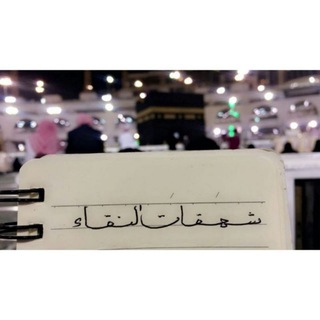 شهقات النقاء